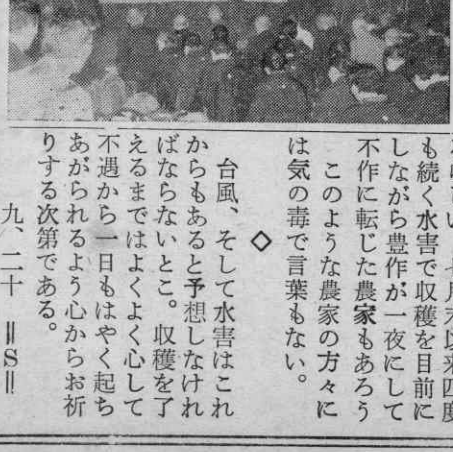 七月末以来四度
も続く水害で収穫を目前に
しながら豊作が一夜にして
不作に転じた農家もあろう
このような農家の方々に
は気の毒で言葉もない。
◇
台風、そして水害はこれ
からもあると予想しなけれ
ばならないとこ。収穫を了
えるまではよくよく心して
不遇から一日もはやく起ち
あがられるよう心からお祈
りする次第である。
九、二十 ‖S‖